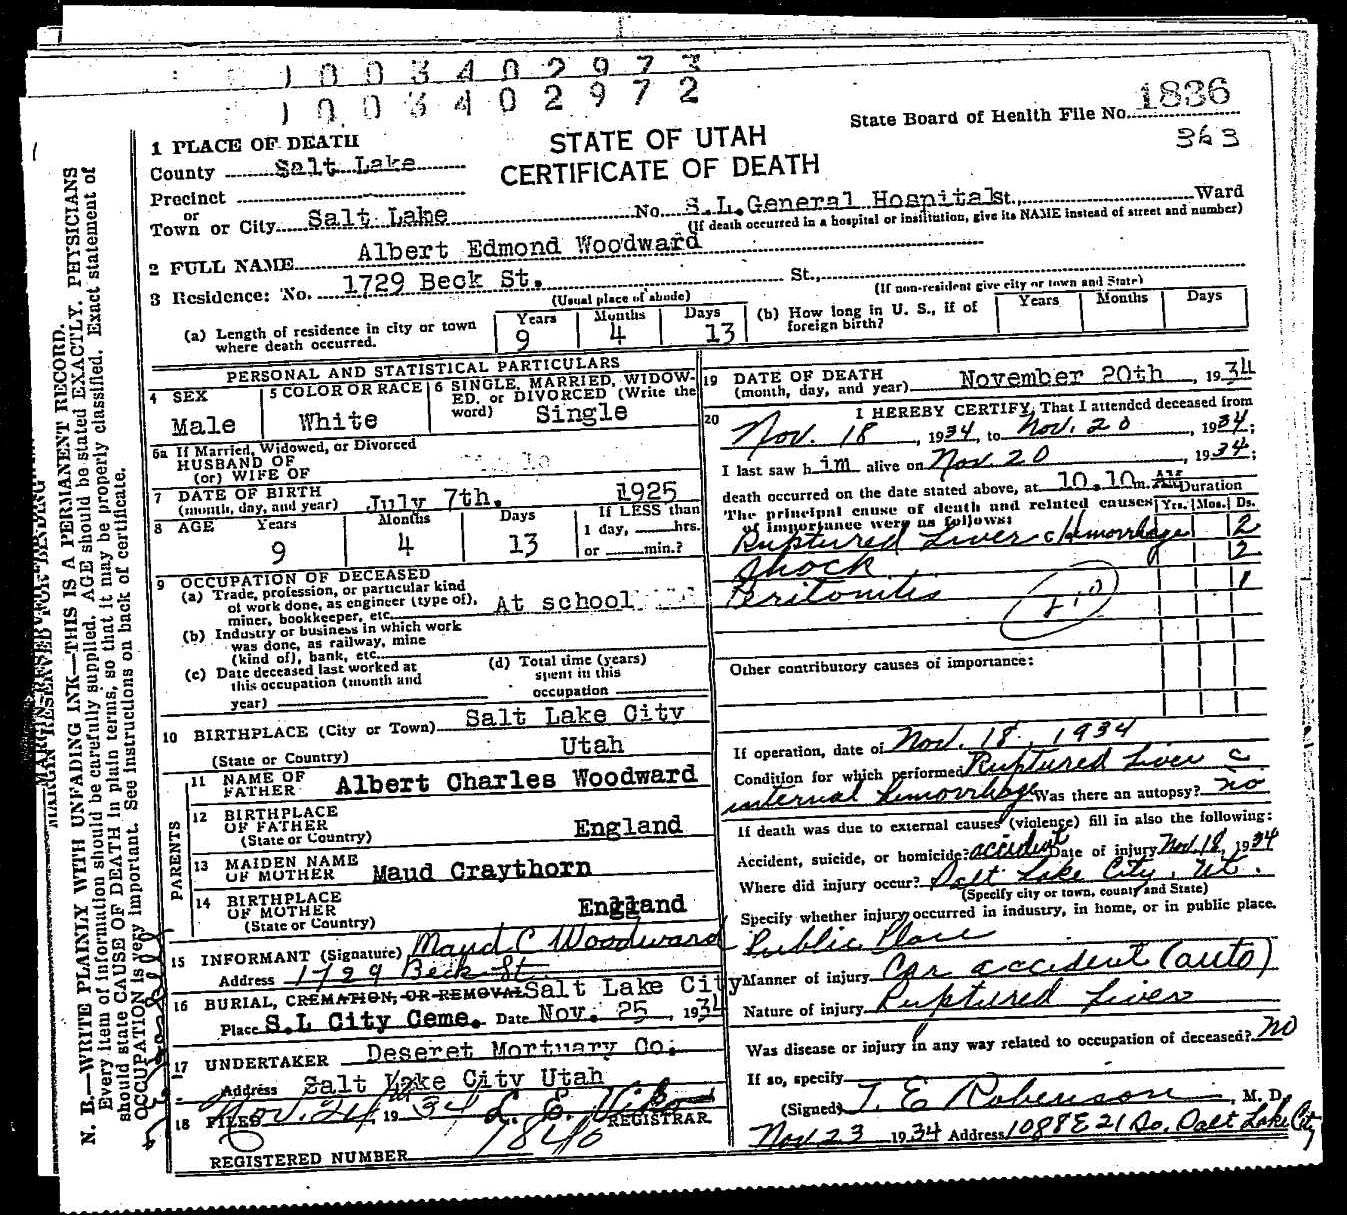 1003402973
1003402972
State Board of Health File No. 1836
363
STATE OF UTAH
CERTIFICATE OF DEATH
1 PLACE OF DEATH
County Salt Lake
Precinct
or
Town or City Salt Lake No. S.L. General Hospital St., Ward
(If death occurred in a hospital or institution, give its NAME instead of street and number)
2 FULL NAME Albert Edmond Woodward
3 Residence: No. 1729 Beck St. St.,
(Usual place of abode) (If non-resident give city or town and State)
(a) Length of residence in city or town where death occurred. Years 9 Months 4 Days 13
(b) How long in U. S., if of foreign birth? Years Months Days
PERSONAL AND STATISTICAL PARTICULARS
4 SEX Male
5 COLOR OR RACE White
6 SINGLE, MARRIED, WIDOWED, or DIVORCED (Write the word) Single
6a If Married, Widowed, or Divorced
HUSBAND OF
(or) WIFE OF
7 DATE OF BIRTH
(month, day, and year) July 7th, 1925
8 AGE Years 9 Months 4 Days 13 If LESS than 1 day, hrs. or min.?
9 OCCUPATION OF DECEASED
(a) Trade, profession, or particular kind
of work done, as engineer (type of),
miner, bookkeeper, etc. At school
(b) Industry or business in which work
was done, as railway, mine
(kind of), bank, etc.
(c) Date deceased last worked at
this occupation (month and
year)
(d) Total time (years)
spent in this
occupation
10 BIRTHPLACE (City or Town) Salt Lake City
(State or Country) Utah
PARENTS
11 NAME OF FATHER Albert Charles Woodward
12 BIRTHPLACE OF FATHER
(State or Country) England
13 MAIDEN NAME OF MOTHER Maud Craythorn
14 BIRTHPLACE OF MOTHER
(State or Country) England
15 INFORMANT (Signature) Maud C Woodward
Address 1729 Beck St.
16 BURIAL, CREMATION, OR REMOVAL Salt Lake City
Place S.L City Ceme. Date Nov. 25, 1934
17 UNDERTAKER Deseret Mortuary Co.
Address Salt Lake City Utah
18 FILED Nov. 24, 1934
REGISTRAR
REGISTERED NUMBER 1840
19 DATE OF DEATH
(month, day, and year) November 20th, 1934
20 I HEREBY CERTIFY, That I attended deceased from
Nov. 18, 1934, to Nov. 20, 1934;
I last saw him alive on Nov 20, 1934;
death occurred on the date stated above, at 10.10 m. AM
The principal cause of death and related causes
of importance were as follows:
Duration Yrs. Mos. Ds.
Ruptured Liver c Hemorrhage 2
Shock 2
Peritonitis 1
Other contributory causes of importance:
If operation, date of Nov. 18, 1934
Condition for which performed Ruptured Liver c
internal hemorrhage Was there an autopsy? no
If death was due to external causes (violence) fill in also the following:
Accident, suicide, or homicide? accident Date of injury Nov. 18, 1934
Where did injury occur? Salt Lake City, Ut.
(Specify city or town, county and State)
Specify whether injury occurred in industry, in home, or in public place.
Public Place
Manner of injury Car accident (auto)
Nature of injury Ruptured Liver
Was disease or injury in any way related to occupation of deceased? no
If so, specify
(Signed) T. E Robinson, M. D.
Nov 23 1934 Address 1088 E 21 So. Salt Lake City
MARGIN RESERVED FOR BINDING
N. B.—WRITE PLAINLY WITH UNFADING INK—THIS IS A PERMANENT RECORD.
Every item of information should be carefully supplied. AGE should be stated EXACTLY. PHYSICIANS
should state CAUSE OF DEATH in plain terms, so that it may be properly classified. Exact statement of
OCCUPATION is very important. See instructions on back of certificate.